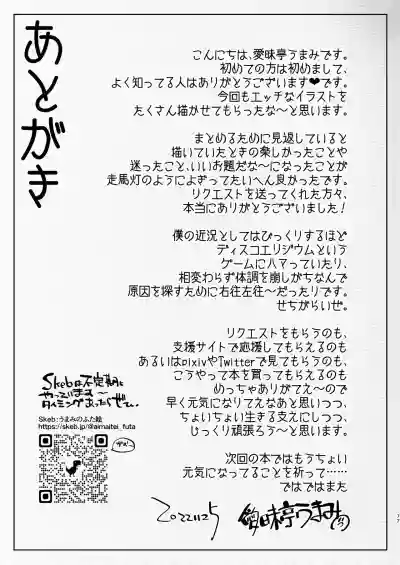 あとがき
こんにちは、愛昧亭うまみです。
初めての方は初めまして、
よく知ってる人はありがとうございます❤です。
今回もエッチなイラストを
たくさん描かせてもらったな〜と思います。
まとめるために見返していると
描いていたときの楽しかったことや
迷ったこと、いいお題だな〜になったことが
走馬灯のようによぎってたいへん良かったです。
リクエストを送ってくれた方々、
本当にありがとうございました!
僕の近況としてはびっくりするほど
ディスコエリジウムという
ゲームにハマっていたり、
相変わらず体調を崩しがちなんで
原因を探すために右往左往〜だったりです。
せちがらいぜ。
リクエストをもらうのも、
支援サイトで応援してもらえるのも
あるいはpixivやTwitterで見てもらうのも、
こうやって本を買ってもらえるのも
めっちゃありがてえ〜ので
早く元気になりてえなあと思いつつ、
ちょいちょい生きる支えにしつつ、
じっくり頑張ろう〜と思います。
次回の本ではもうちょい
元気になってることを祈って……
ではではまた
2022.11.25
愛昧亭うまみ
Skebは不定期に
やっています〜
タイミングあったらぜひ。
Skeb:うまみのふた絵
https://skeb.jp/@aimaitei_futa
77